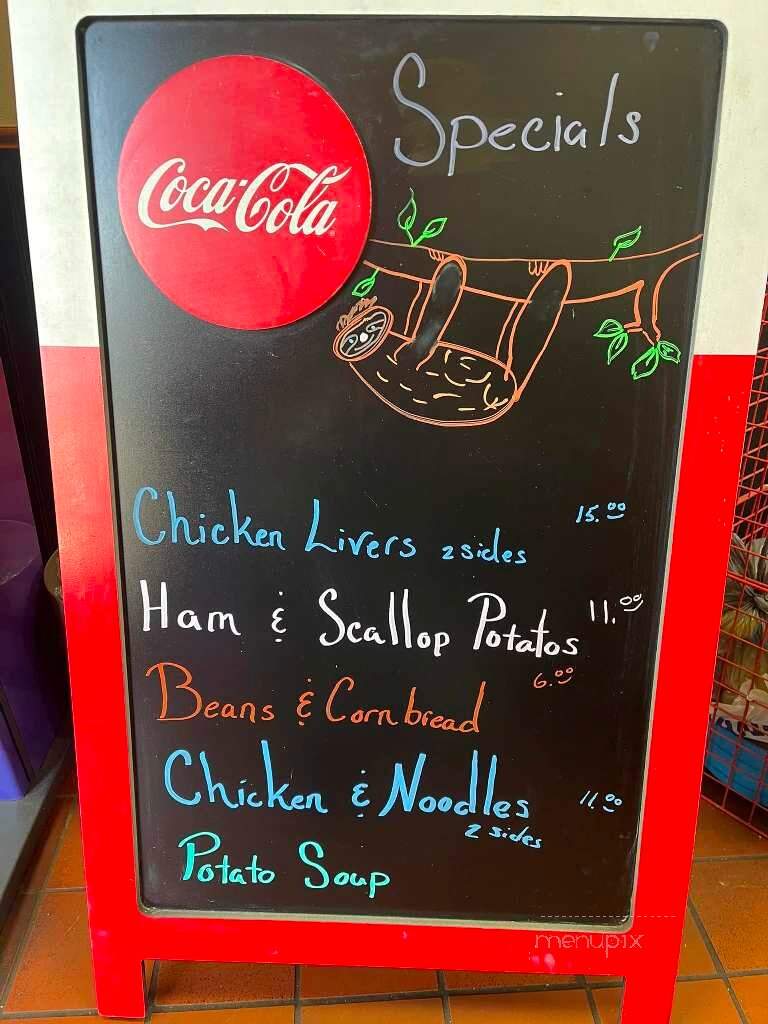 Coca-Cola
Specials
Chicken Livers 2 sides 15.00
Ham & Scallop Potatos 11.00
Beans & Cornbread 6.00
Chicken & Noodles 11.00
2 sides
Potato Soup
menupix